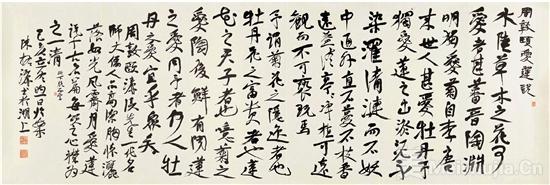 周敦頤愛蓮說
水陸草木之花可
愛者甚蕃晉陶淵
明獨愛菊自李唐
來世人甚愛牡丹予
獨愛蓮之出淤泥而不
染濯清漣而不妖
中通外直不蔓不枝香
遠益清亭亭淨植可遠
觀而不可褻玩焉
予謂菊花之隱逸者也
牡丹花之富貴者也蓮
花之君子者也噫菊之
愛陶後鮮有聞蓮
之愛同予者何人牡
丹之愛宜乎衆矣
周敦頤濂溪先生一代名
師人品甚高胸懷灑
落如光風霽月愛蓮
之一清
陳振濂於湖上